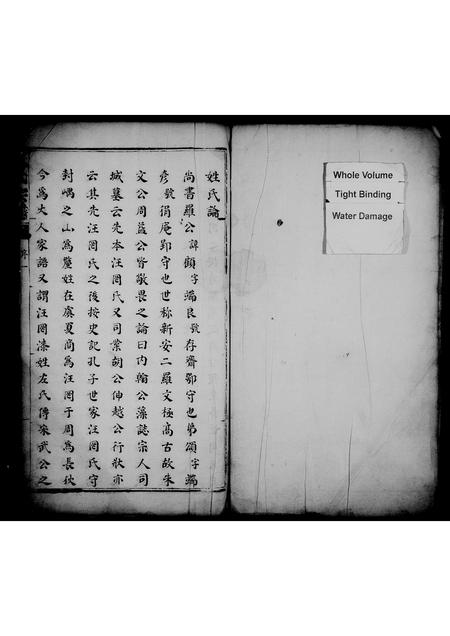 姓氏論
尚書羅公諱願字端良號存齋鄂守也弟頌字端
彥號狷庵郢守也世称新安二羅文極高古故朱
文公周益公皆敬畏之論曰内翰公藻誌宗人司
城墓云先本汪罔氏又司業胡公伸越公行狀亦
云其先汪罔氏之後按史記孔子世家汪罔氏守
封嵎之山為釐姓在虞夏商為汪罔于周為長狄
今為大人家語又謂汪罔漆姓左氏傳宋武公之
Whole Volume
Tight Binding
Water Damage